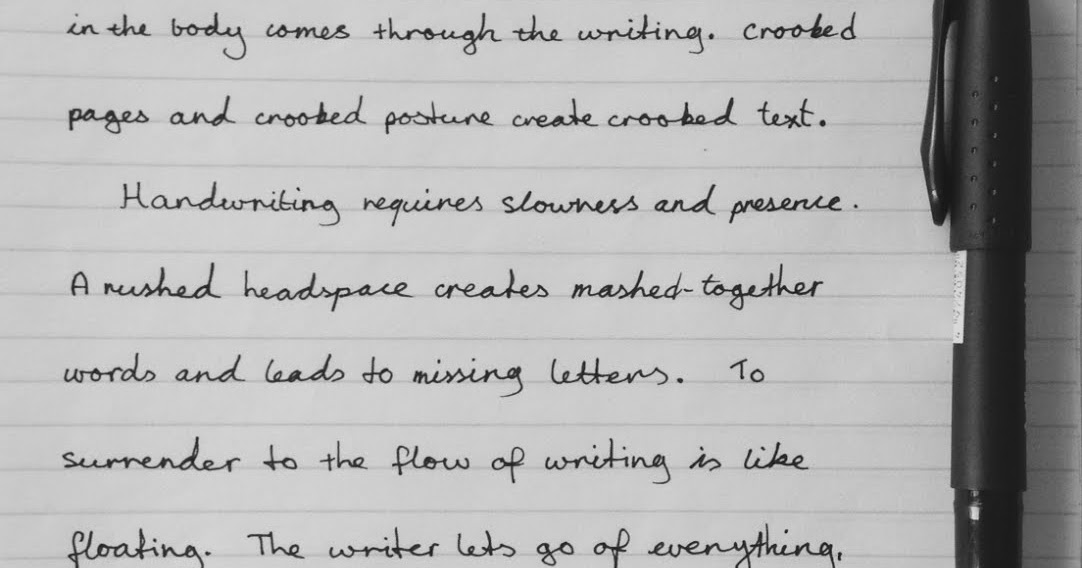 in the body comes through the writing. Crooked
pages and crooked posture create crooked text.
Handwriting requires slowness and presence.
A rushed headspace creates mashed-together
words and leads to missing letters. To
surrender to the flow of writing is like
floating. The writer lets go of everything,